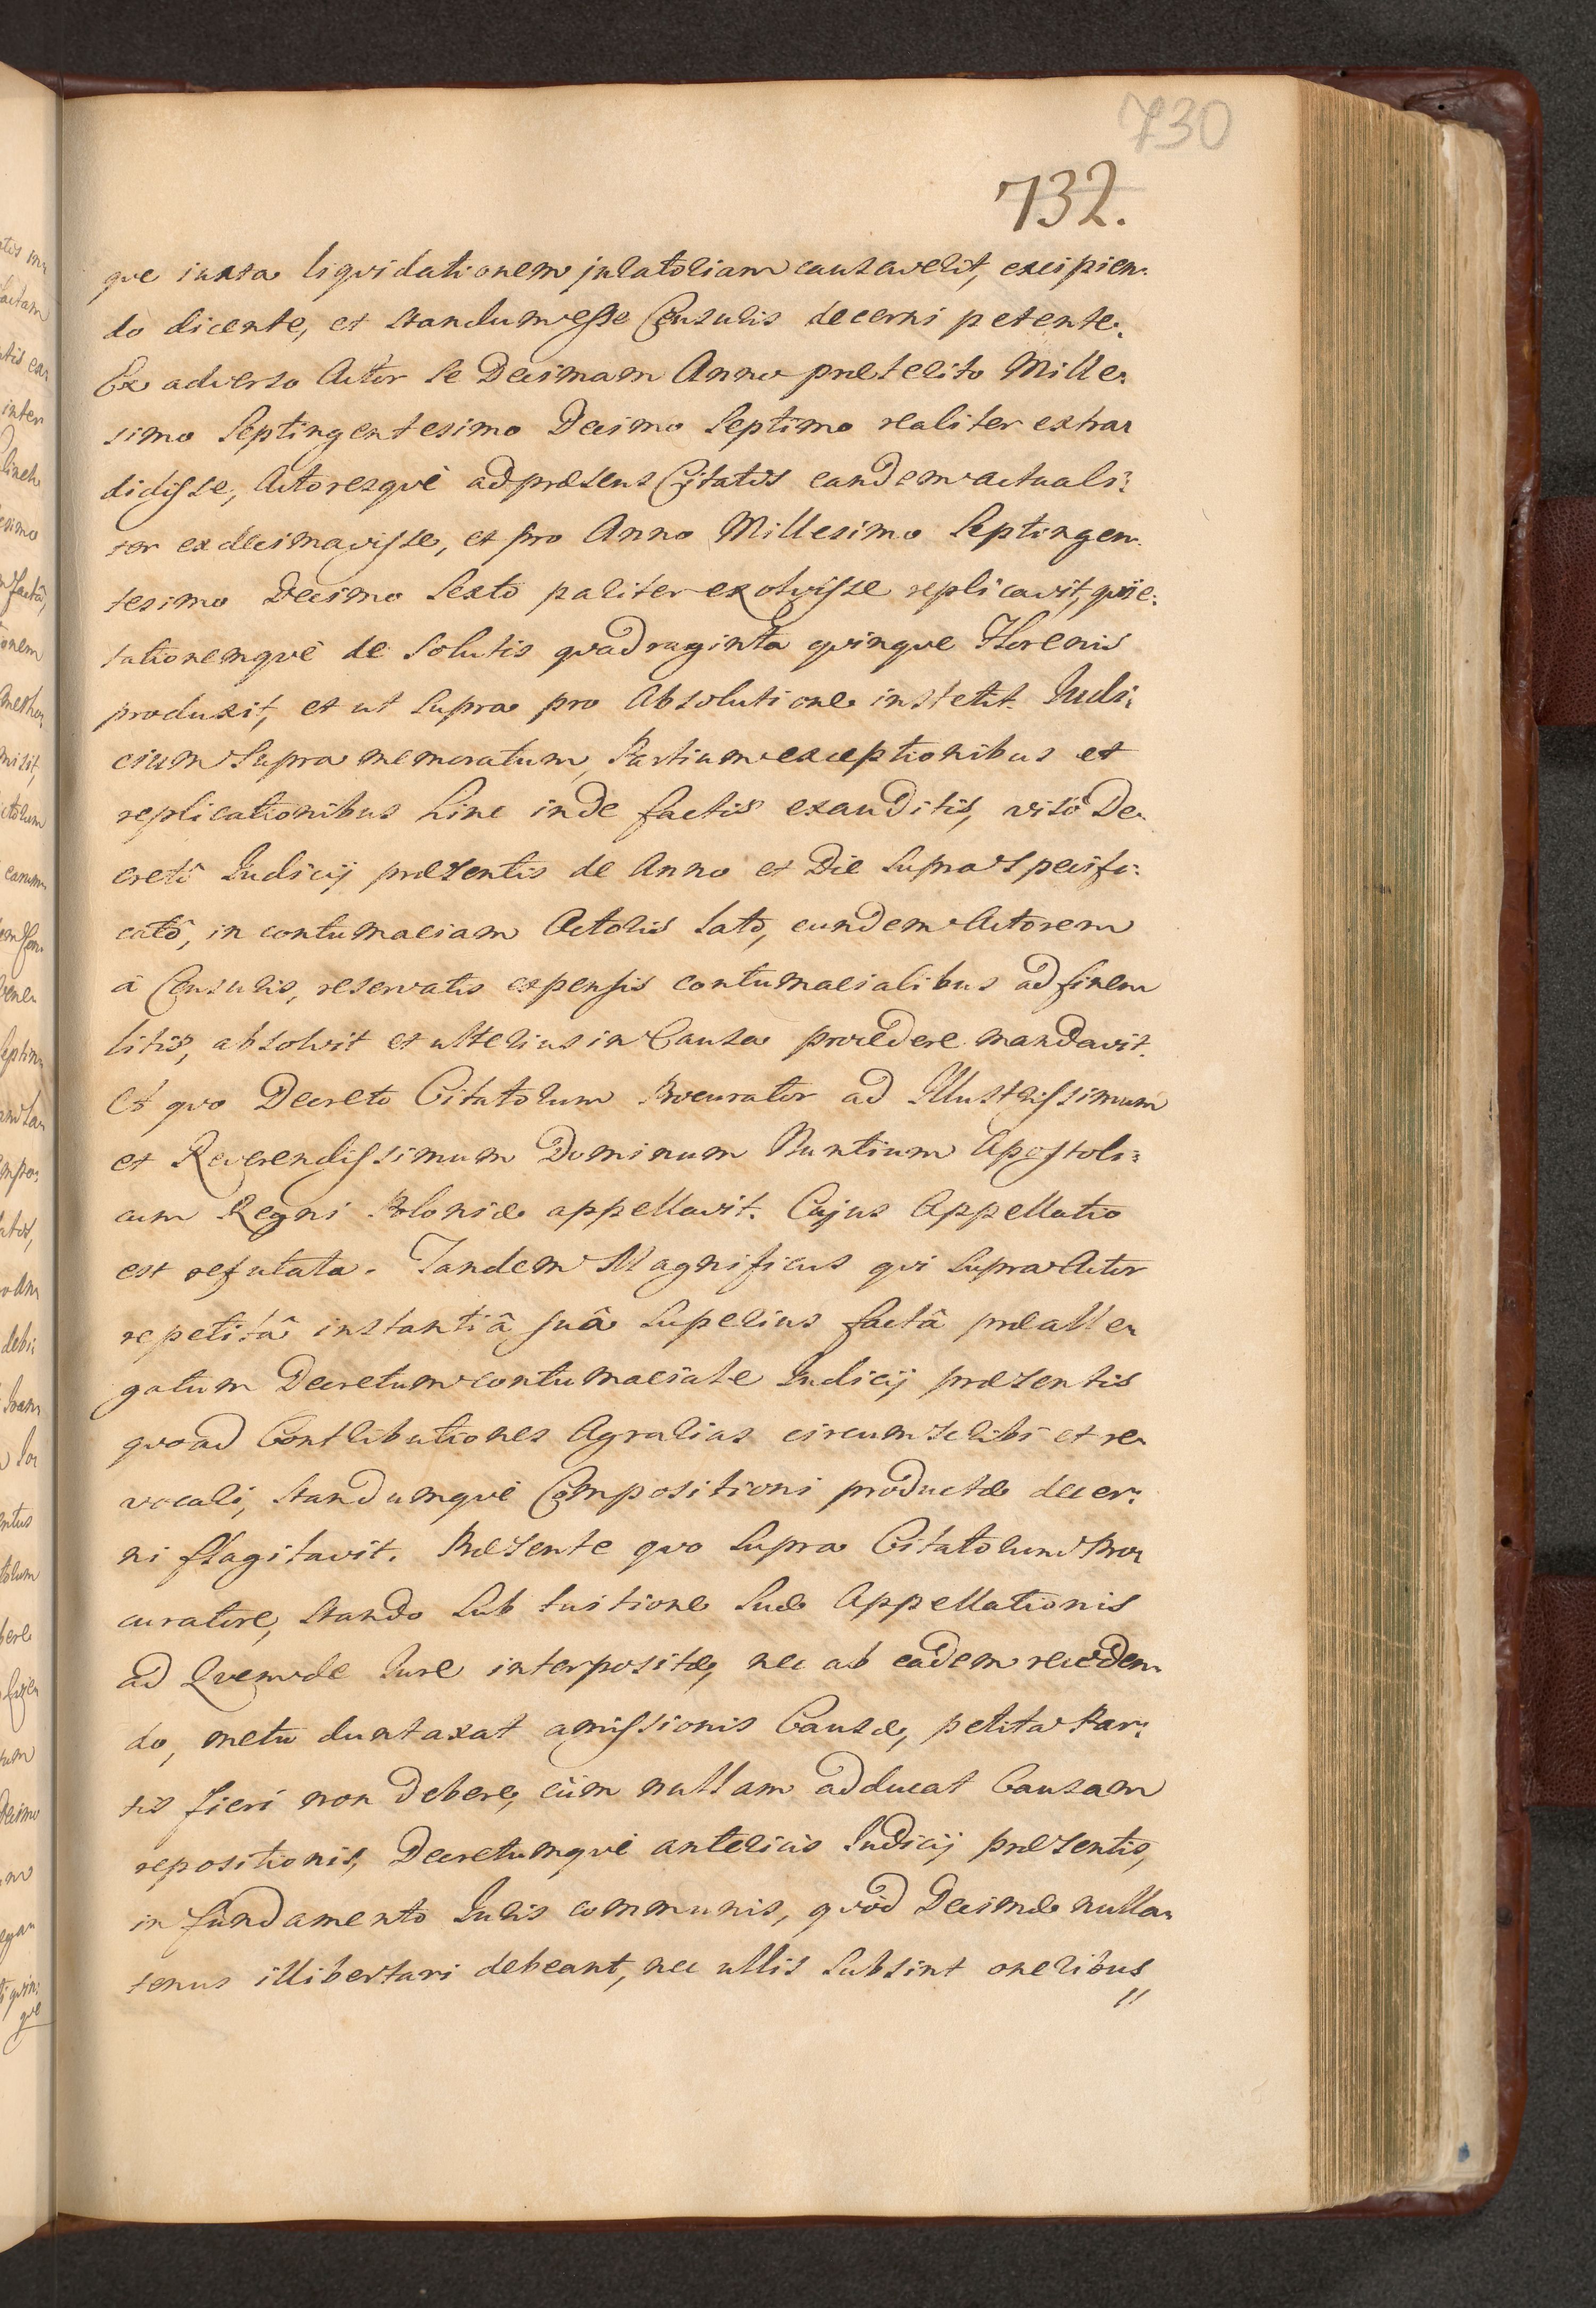 730
732.
que iuxta liquidationem juratoriam causaverit, excipien:
do dicente, et standum esse Censuris decerni petente.
Ex adverso Actor se Decimam Anno præterito Mille:
simo Septingentesimo Decimo Septimo realiter extra:
didisse, Actoresquè ad præsens Citatos eandem actuali:
ter exdecimavisse, et pro Anno Millesimo Septingen:
tesimo Decimo Sexto pariter exolvisse replicavit, quie:
tationemquè de solutis quadraginta quinque Florenis
produxit, et ut supra pro Absolutione institit. Judi:
cium supra memoratum, Partium exceptionibus et
replicationibus hinc inde factis exauditis, visô De:
cretô Judicij præsentis de Anno et Die supra specifi:
catô, in contumaciam Actoris latô, eundem Actorem
â Censuris, reservatis expensis contumacialibus ad finem
litis, absolvit et ulterius in Causa procedere mandavit.
Et quo Decreto Citatorum Procurator ad Illustrissimum
et Reverendissimum Dominum Nuntium Apostoli:
cum Regni Poloniæ appellavit. Cujus Appellatio
est refutata. Tandem Magnificus qui supra Actor
repetitâ instantiâ suâ superius factâ prealle:
gatum Decretum contumaciale Judicij præsentis
quoad Contributiones Agrarias circumscribi et re:
vocari, standumquè Compositioni productæ decer:
ni flagitavit. Præsente quo supra Citatorum Pro:
curatore, stando sub tuitione suæ Appellationis
ad Quem de Jure interpositæ, nec ab eadem receden:
do, metu duntaxat amissionis Causæ, petita Par:
tis fieri non debere, cùm nullam adducat Causam
repositionis, Decretumquè anterius Judicij præsentis,
in fundamento Juris communis, quòd Decimæ nulla:
tenus illibertari debeant, nec ullis subsint oneribus